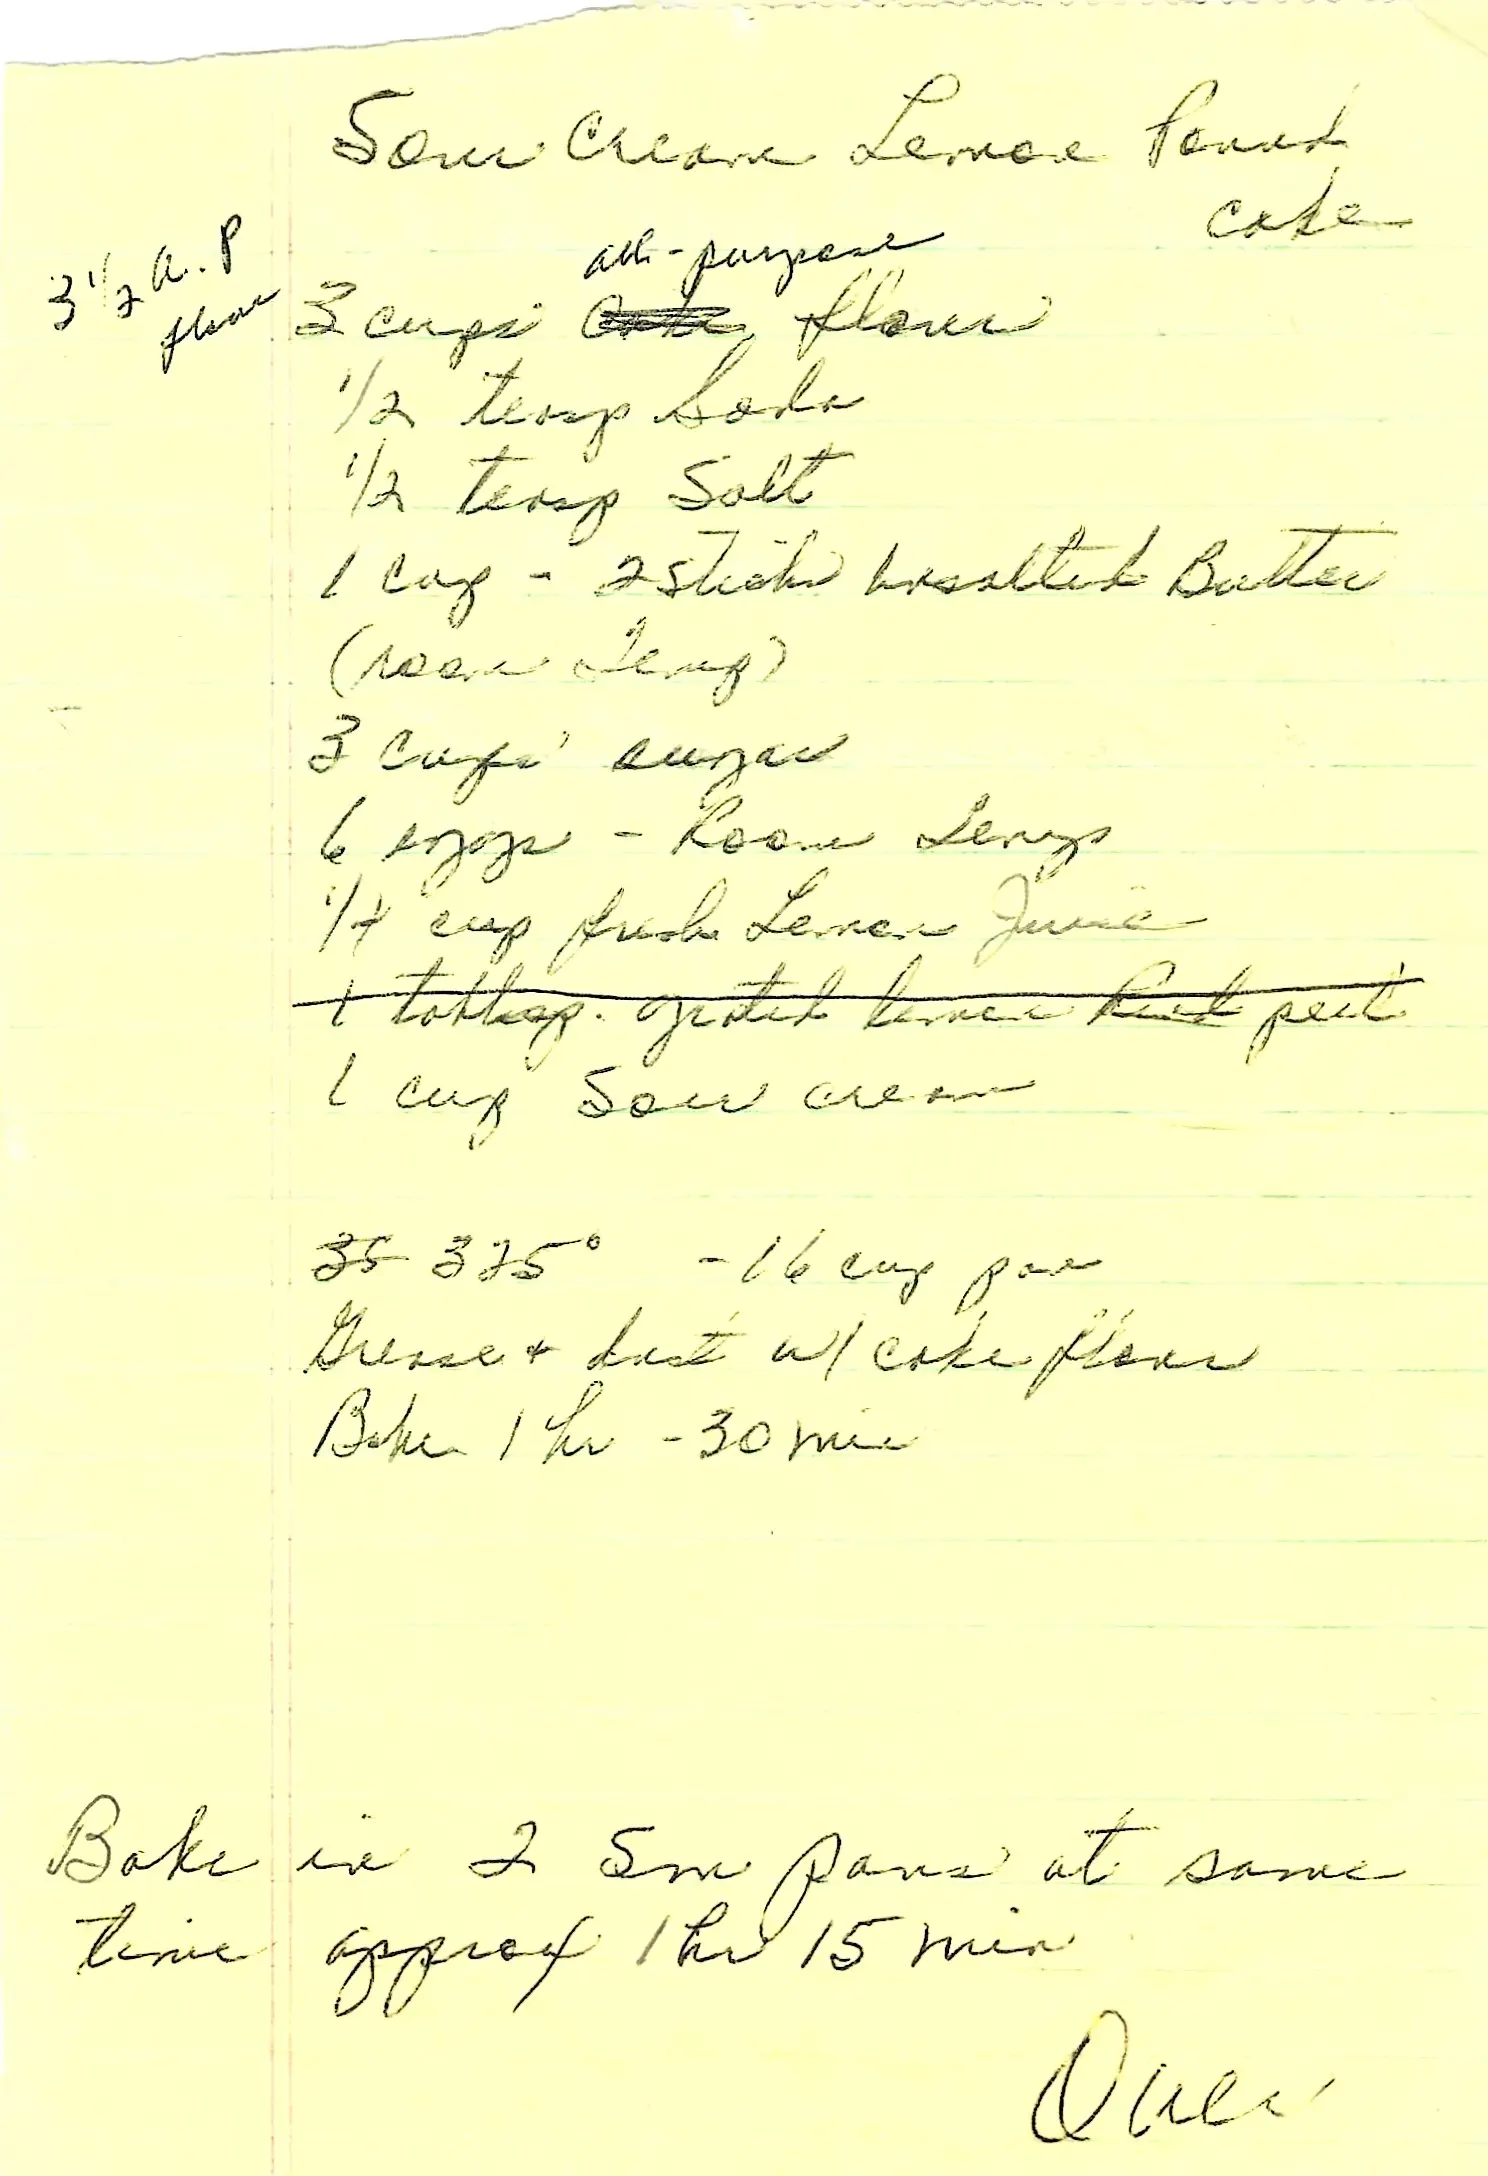 Sour Cream Lemon Pound
cake
all-purpose
3 1/2 A.P
flour
3 cups Cake flour
1/2 teasp Soda
1/2 teasp Salt
1 cup - 2 sticks unsalted Butter
(room Temp)
3 cups sugar
6 eggs - Room Temp
1/4 cup fresh Lemon Juice
1 tablesp. grated lemon Rind peel
1 cup Sour cream
35 325° - 16 cup pan
Grease + dust w/ cake flour
Bake 1 hr - 30 min
Bake in 2 Sm pans at same
time approx 1 hr 15 min
Over